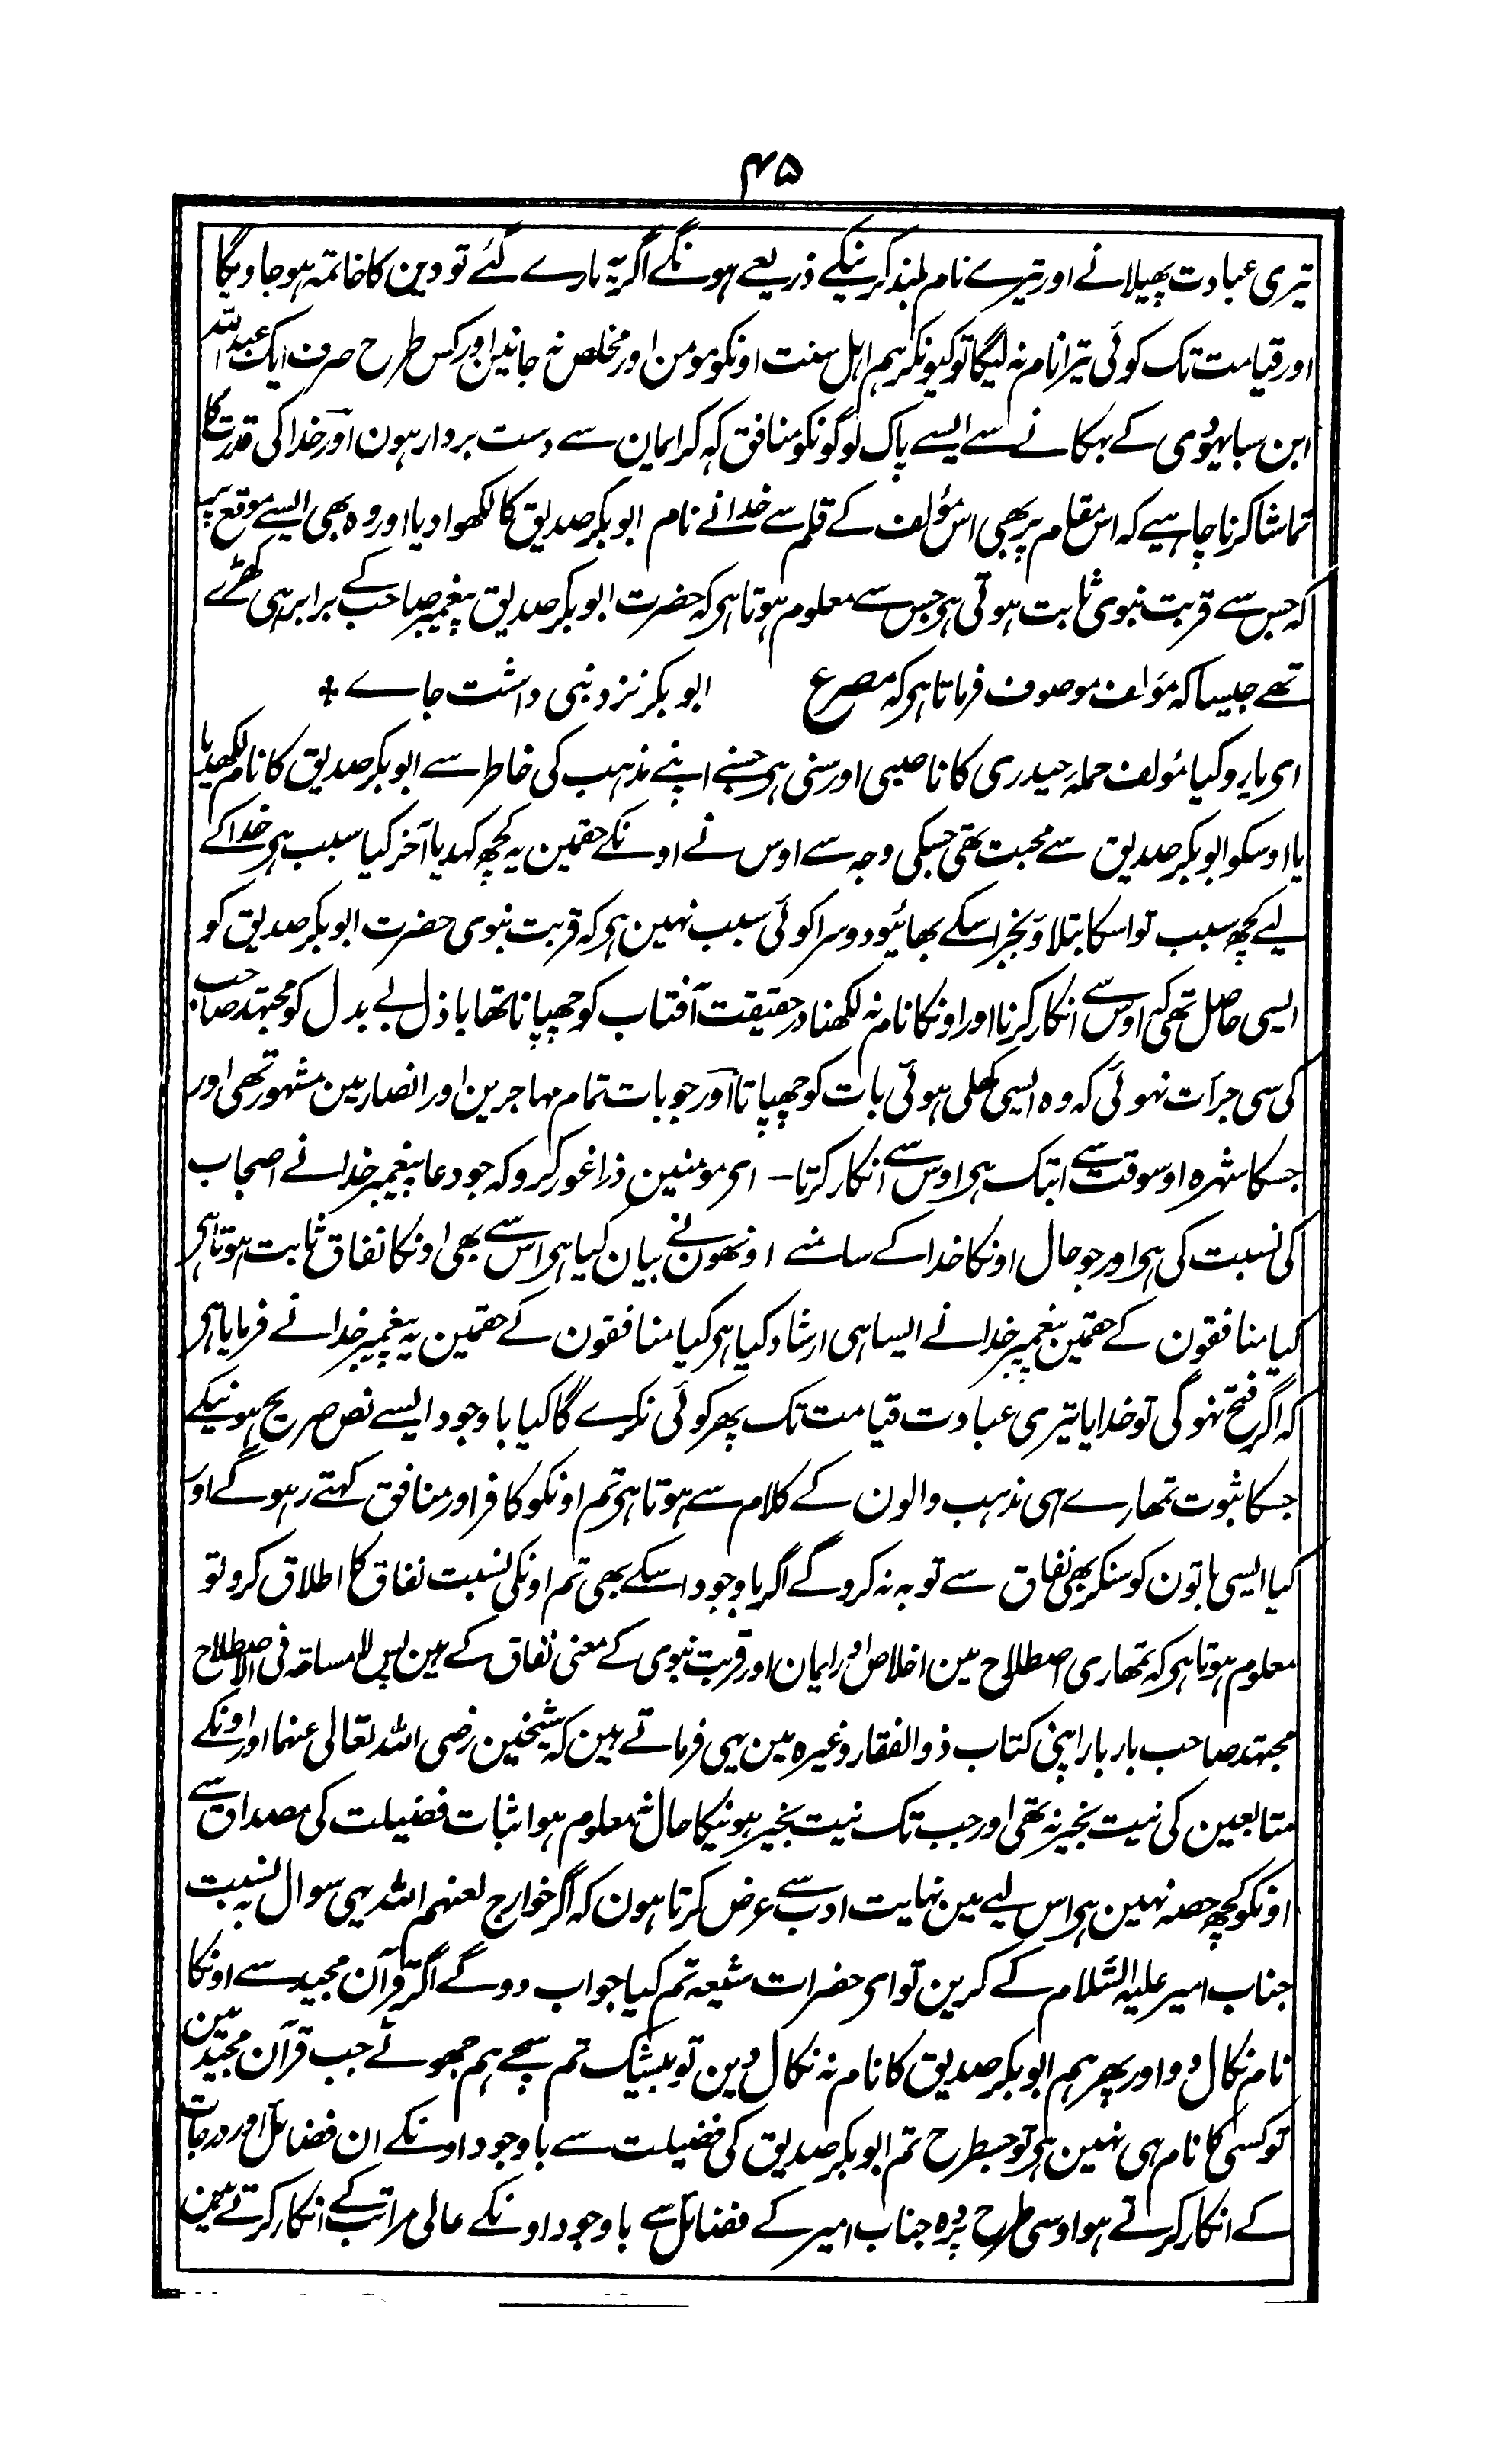 ۴۵
تیری عبادت پھیلانے اور تیرے نام بلند کرنیکے ذریعے ہونگے اگر یہ مارے گئے تو دین کا خاتمہ ہو جاویگا
اور قیامت تک کوئی تیرا نام نہ لیگا تو کیونکر ہم اہل سنت اونکو مومن اور مخلص نہ جانیں اور کس طرح صرف ایک عبداللہ
ابن سبا یہودی کے بہکانے سے ایسے پاک لوگونکو منافق کہ کر ایمان سے دست بردار ہون اور خدا کی قدرت کا
تماشا کرنا چاہیے کہ اس مقام پر بھی اس مؤلف کے قلم سے خدا نے نام ابو بکر صدیق کا لکھوا دیا اور وہ بھی ایسے موقع پر
کہ جس سے قربت نبوی ثابت ہوتی ہی جس سے معلوم ہوتا ہی کہ حضرت ابو بکر صدیق پیغمبر صاحب کے برابر ہی کھڑے
تھے جیسا کہ مؤلف موصوف فرماتا ہی کہ مصرع ابو بکر نزد نبی داشت جاے
ای یارو کیا مؤلف حملہ حیدری کا ناصبی اور سنی ہی جسنے اپنے مذہب کی خاطر سے ابو بکر صدیق کا نام لکھدیا
یا اوسکو ابو بکر صدیق سے محبت تھی جسکی وجہ سے اوس نے اونکے حقمین یہ کچھ کہدیا آخر کیا سبب ہی خدا کے
لیے کچھ سبب تو اسکا بتلاؤ بجز اسکے بھائیو دوسرا کوئی سبب نہین ہی کہ قربت نبوی حضرت ابو بکر صدیق کو
ایسی حاصل تھی کہ اوس سے انکار کرنا اور اونکا نام نہ لکھنا در حقیقت آفتاب کو چھپانا تھا باذل بے بدل کو مجتہد صاحب
کی سی جرأت نہوئی کہ وہ ایسی کھلی ہوئی بات کو چھپاتا اور جو بات تمام مہاجرین اور انصار مین مشہور تھی اور
جسکا شہرہ اوسوقت سے ابتک ہی اوس سے انکار کرتا – ای مومنین ذرا غور کرو کہ جو دعا پیغمبر خدا نے اصحاب
کی نسبت کی ہی اور جو حال اونکا خدا کے سامنے اونھون نے بیان کیا ہی اس سے بھی اونکا نفاق ثابت ہوتا ہی
کیا منافقون کے حقمین پیغمبر خدا نے ایسا ہی ارشاد کیا ہی کیا منافقون کے حقمین یہ پیغمبر خدا نے فرمایا ہی
کہ اگر فتح نہوگی تو خدایا تیری عبادت قیامت تک پھر کوئی نکرے گا کیا باوجود ایسے نص صریح ہونیکے
جسکا ثبوت تمھارے ہی مذہب والون کے کلام سے ہوتا ہی تم اونکو کافر اور منافق کہتے رہو گے اور
کیا ایسی باتون کو سنکر بھی نفاق سے توبہ نہ کرو گے اگر باوجود اسکے بھی تم اونکی نسبت نفاق کا اطلاق کرو تو
معلوم ہوتا ہی کہ تمھاری اصطلاح مین اخلاص اور ایمان اور قربت نبوی کے معنی نفاق کے ہین پس لا مسامحہ فی الاصطلاح
مجتہد صاحب بار بار اپنی کتاب ذوالفقار وغیرہ مین یہی فرماتے ہین کہ شیخین رضی اللہ تعالی عنہما اور اونکے
متابعین کی نیت بخیر نہ تھی اور جب تک نیت بخیر ہونیکا حال نہ معلوم ہو اثبات فضیلت کی مصداق سے
اونکو کچھ حصہ نہین ہی اس لیے مین نہایت ادب سے عرض کرتا ہون کہ اگر خوارج لعنہم اللہ یہی سوال بہ نسبت
جناب امیر علیہ السلام کے کرین تو ای حضرات شیعہ تم کیا جواب دو گے اگر قرآن مجید سے اونکا
نام نکال دو اور پھر ہم ابو بکر صدیق کا نام نہ نکال دین تو بیشک تم سچے ہم جھوٹے جب قرآن مجید مین
تو کسی کا نام ہی نہین ہی تو جسطرح تم ابو بکر صدیق کی فضیلت سے باوجود اونکے ان فضائل اور درجات
کے انکار کرتے ہو اوسی طرح پر وہ جناب امیر کے فضائل سے باوجود اونکے عالی مراتب کے انکار کرتے ہین